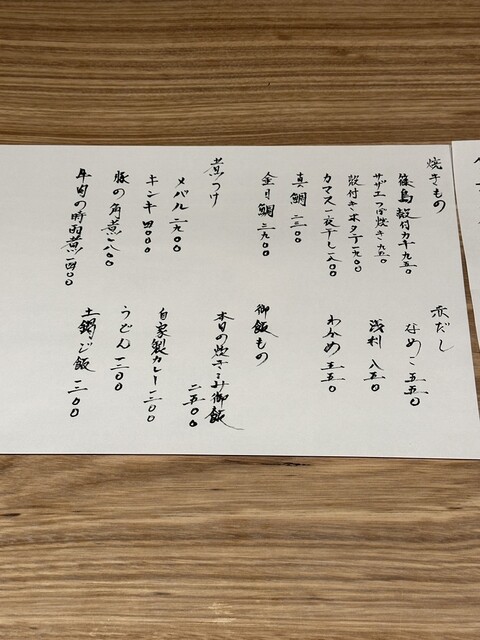 焼きもの
篠島殻付カキ 九五〇
サザエつぼ焼き 九五〇
殻付きホタテ 一九〇〇
カマス一夜干し 一八〇〇
真鯛 二三〇〇
金目鯛 三九〇〇
煮つけ
メバル 二九〇〇
キンキ 四〇〇〇
豚の角煮 一八〇〇
牛肉の時雨煮 一四〇〇
赤だし
なめこ 五五〇
浅利 八五〇
わかめ 五五〇
御飯もの
本日の炊きこみ御飯
二五〇〇
自家製カレー 一三〇〇
うどん 一三〇〇
土鍋ご飯 一三〇〇